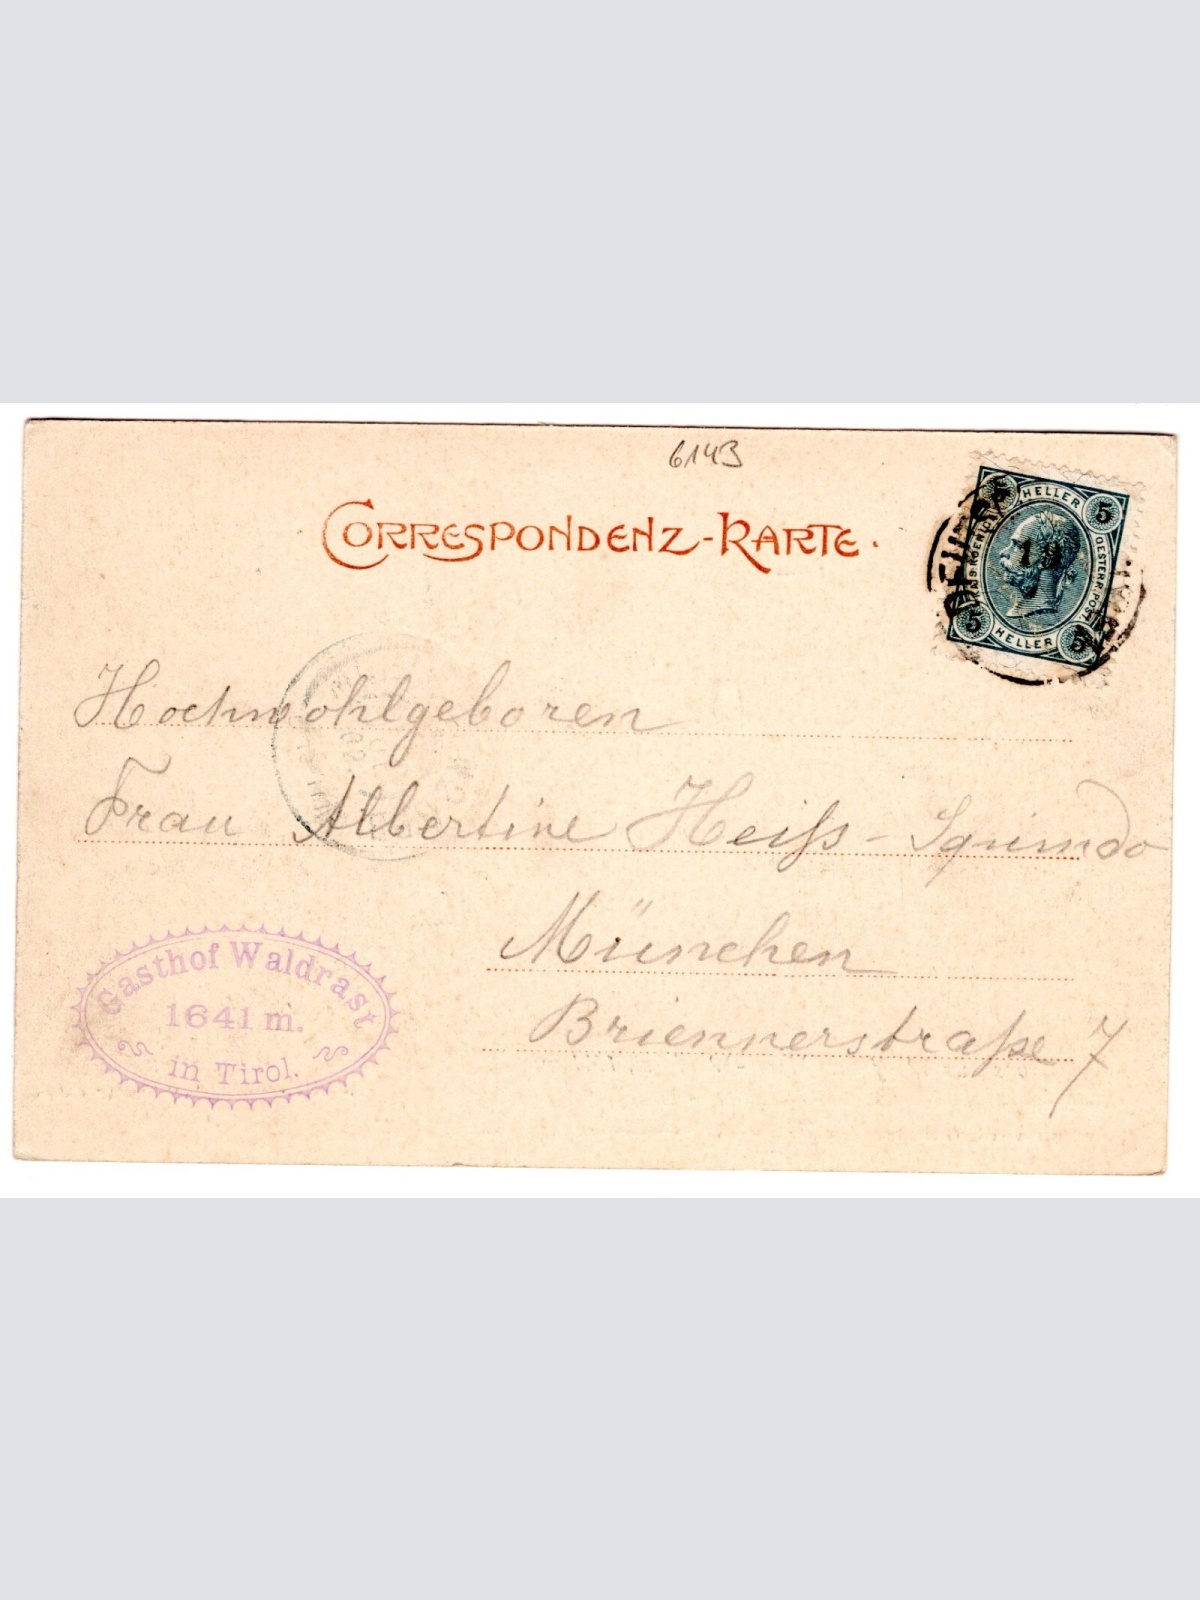 6143
CORRESPONDENZ-KARTE.
HELLER
5
KAIS. KOENIGL.
OESTERR. POST.
19
5
HELLER
5
Hochwohlgeboren
Frau Albertine Heiß-
München
Briennerstraße 7
Gasthof Waldrast
1641 m.
in Tirol.